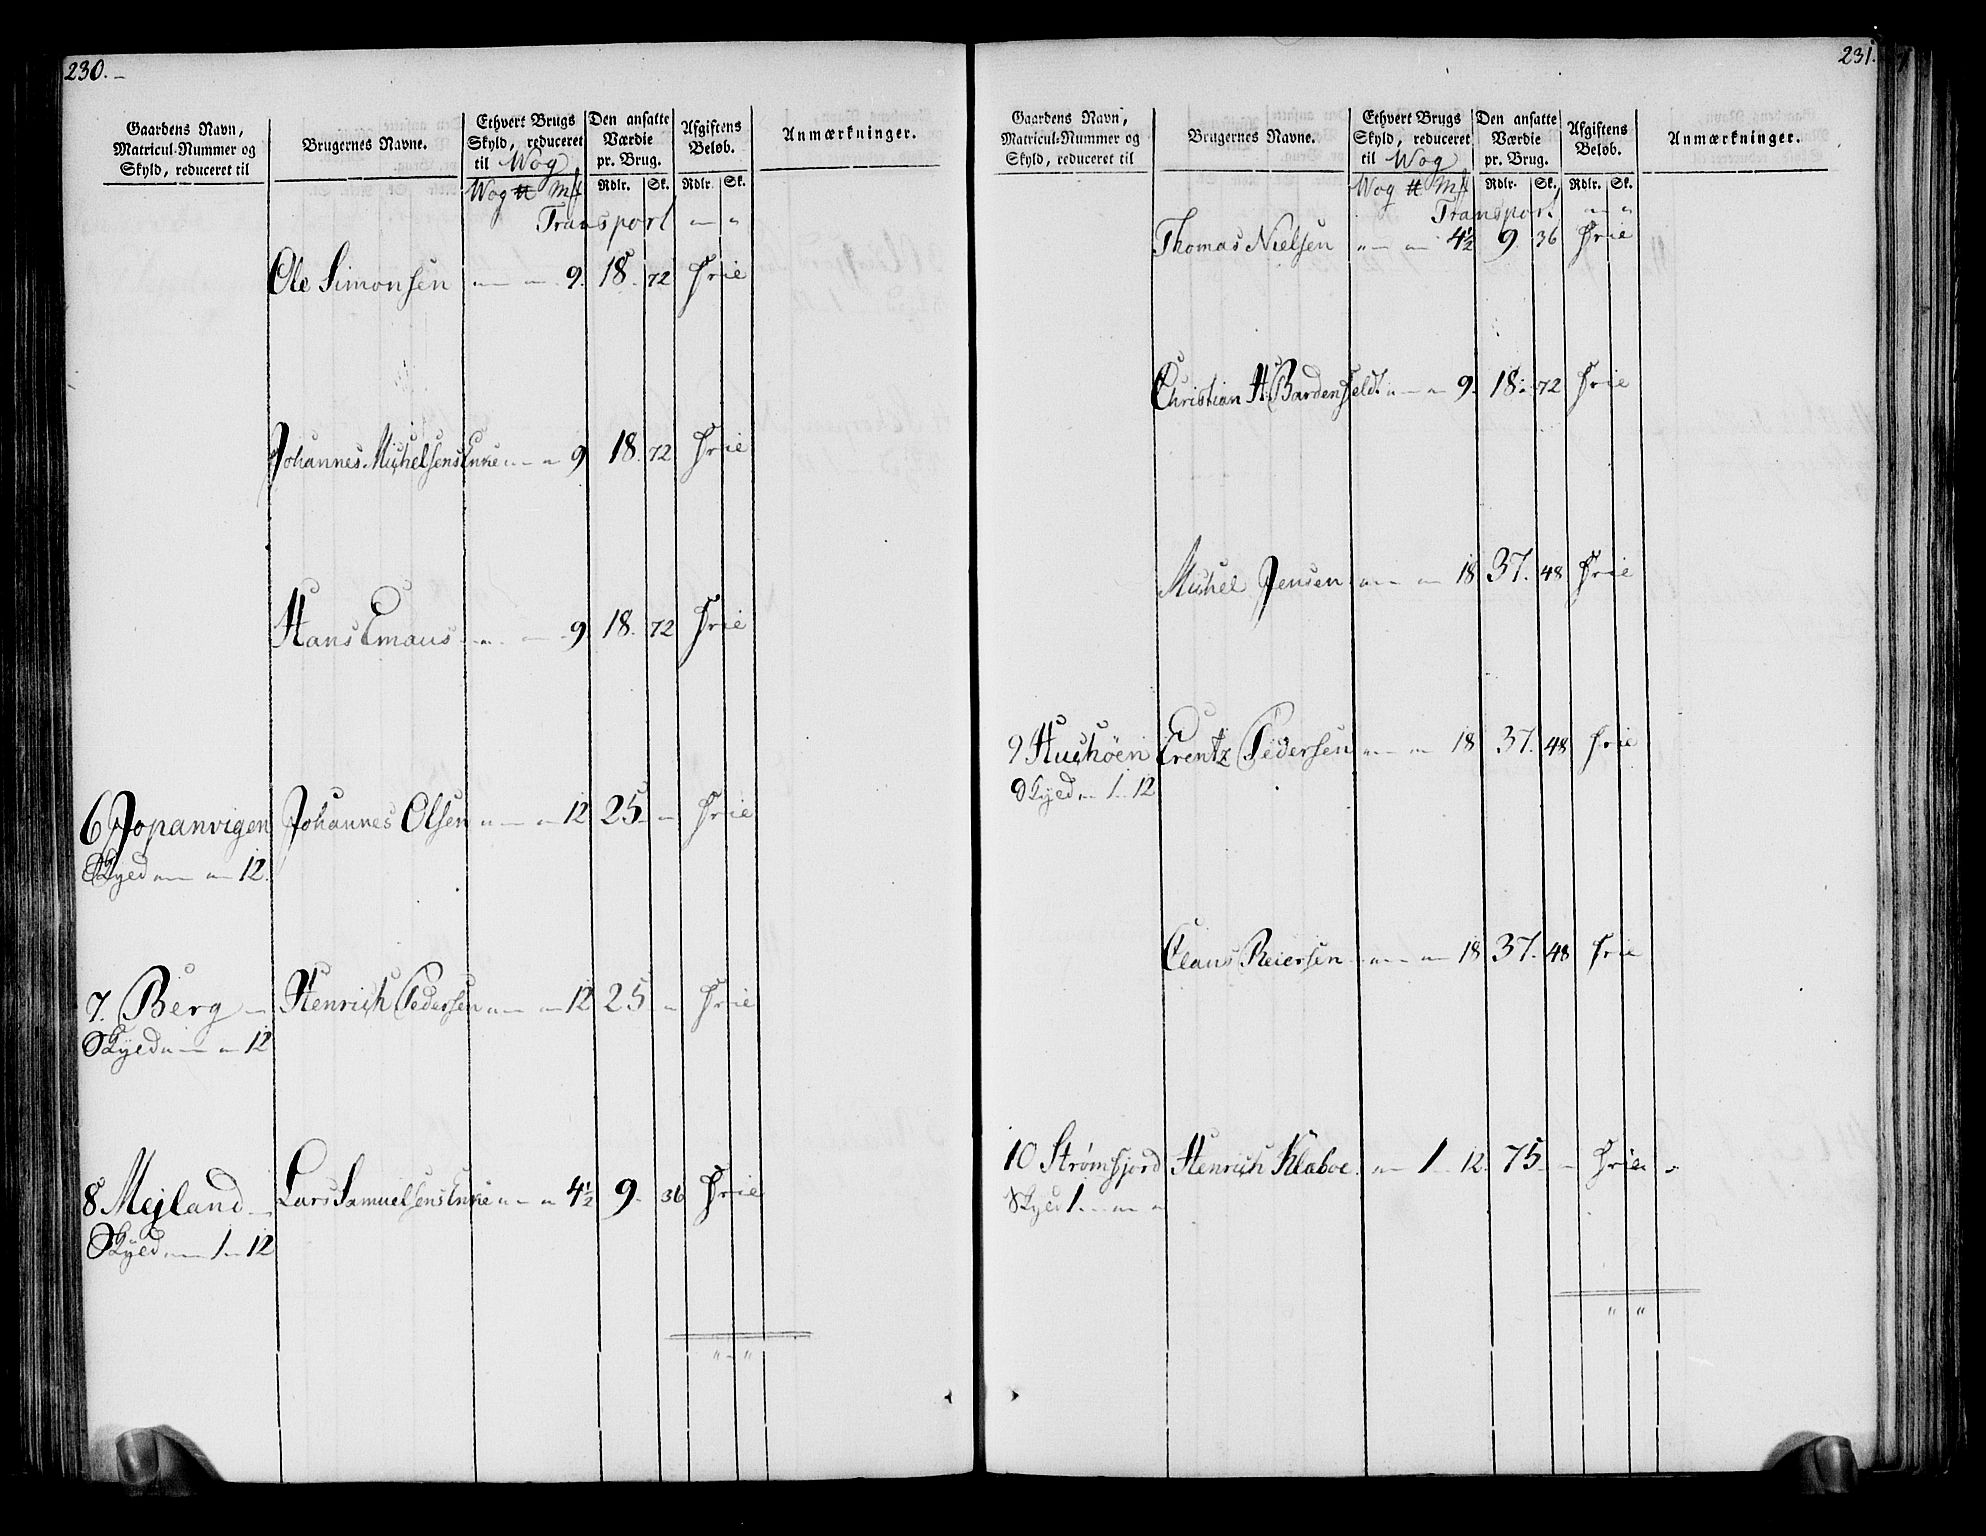 230.
Gaardens Navn, Matricul-Nummer og Skyld, reduceret til | Brugernes Navne. | Ethvert Brugs Skyld, reduceret til Wog | Den ansatte Værdie pr. Brug. | Afgiftens Beløb. | Anmærkninger.
Wog ℔ Mk | Rdlr. Sk. | Rdlr. Sk.
Transport " "
Ole Simonsen " " 9. 18. 72 Frie
Johannes Michelsens Enke " " 9 18. 72 Frie
Hans Emaus " " 9. 18. 72 Frie
6 Jopanvigen Johannes Olsen " " 12 25 " Frie
Skyld " " 12.
7. Berg Henrich Pedersen " " 12 25 " Frie
Skyld " " 12
8 Mejland Lars Samuelsens Enke " " 4½ 9. 36 Frie
Skyld " 1 " 12
" "
231.
Gaardens Navn, Matricul-Nummer og Skyld, reduceret til | Brugernes Navne. | Ethvert Brugs Skyld, reduceret til Wog | Den ansatte Værdie pr. Brug. | Afgiftens Beløb. | Anmærkninger.
Wog ℔ Mk | Rdlr. Sk. | Rdlr. Sk.
Transport " "
Thomas Nielsen " " 4½ 9. 36 Frie
Christian H. Bardenfeldt " " 9. 18. 72 Frie
Michel Jensen " " 18 37. 48 Frie
9 Hushöen Erentz Pedersen " " 18 37. 48 Frie
Skyld " 1 " 12
Claus Reiersen " " 18 37. 48 Frie
10 Strømfjord Henrich Klæboe " 1 12. 75 " Frie "
Skyld 1 " "
" "